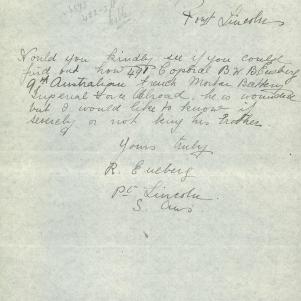 Port Lincoln
Would you kindly see if you could
find out how 491 Corporal B W Eneberg
9th Australian Trench Mortar Battery
Imperial Force Abroad, he is wounded
but I would like to know if
severely or not being his brother
Yours truly
R. Eneberg
Pt Lincoln
S. Aus